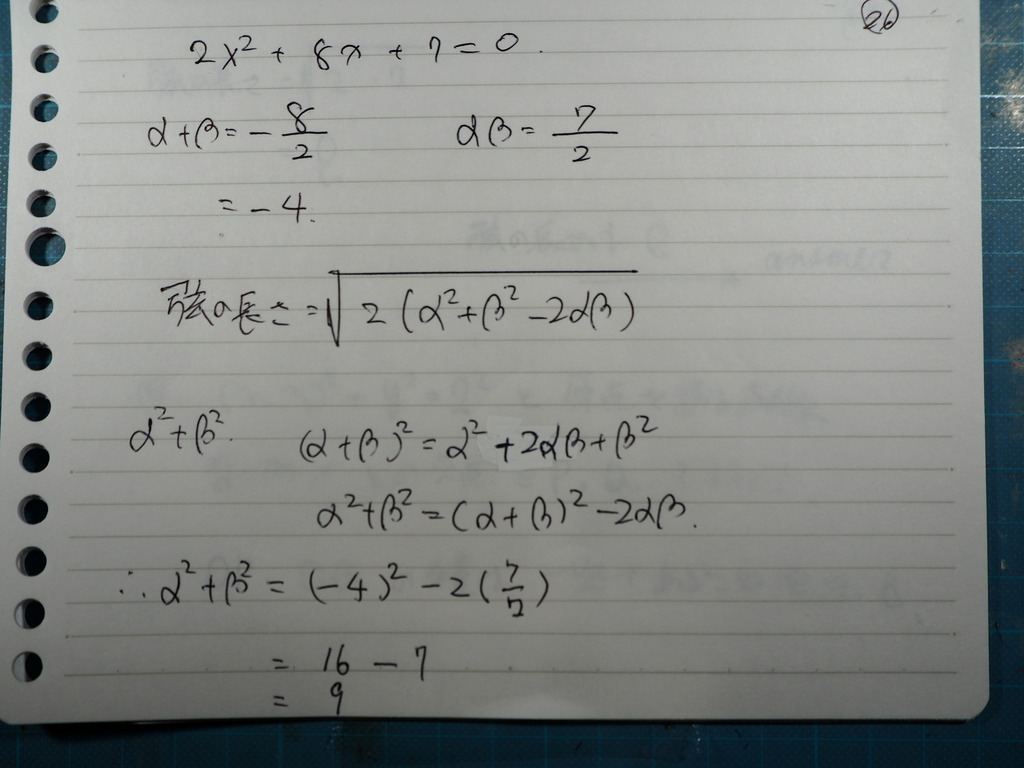 26
2x² + 8x + 7 = 0.
α+β = -8/2 αβ = 7/2
= -4.
弦の長さ = √2(α²+β²-2αβ)
α²+β². (α+β)² = α²+2αβ+β²
α²+β² = (α+β)²-2αβ.
∴ α²+β² = (-4)²-2(7/2)
= 16 - 7
= 9